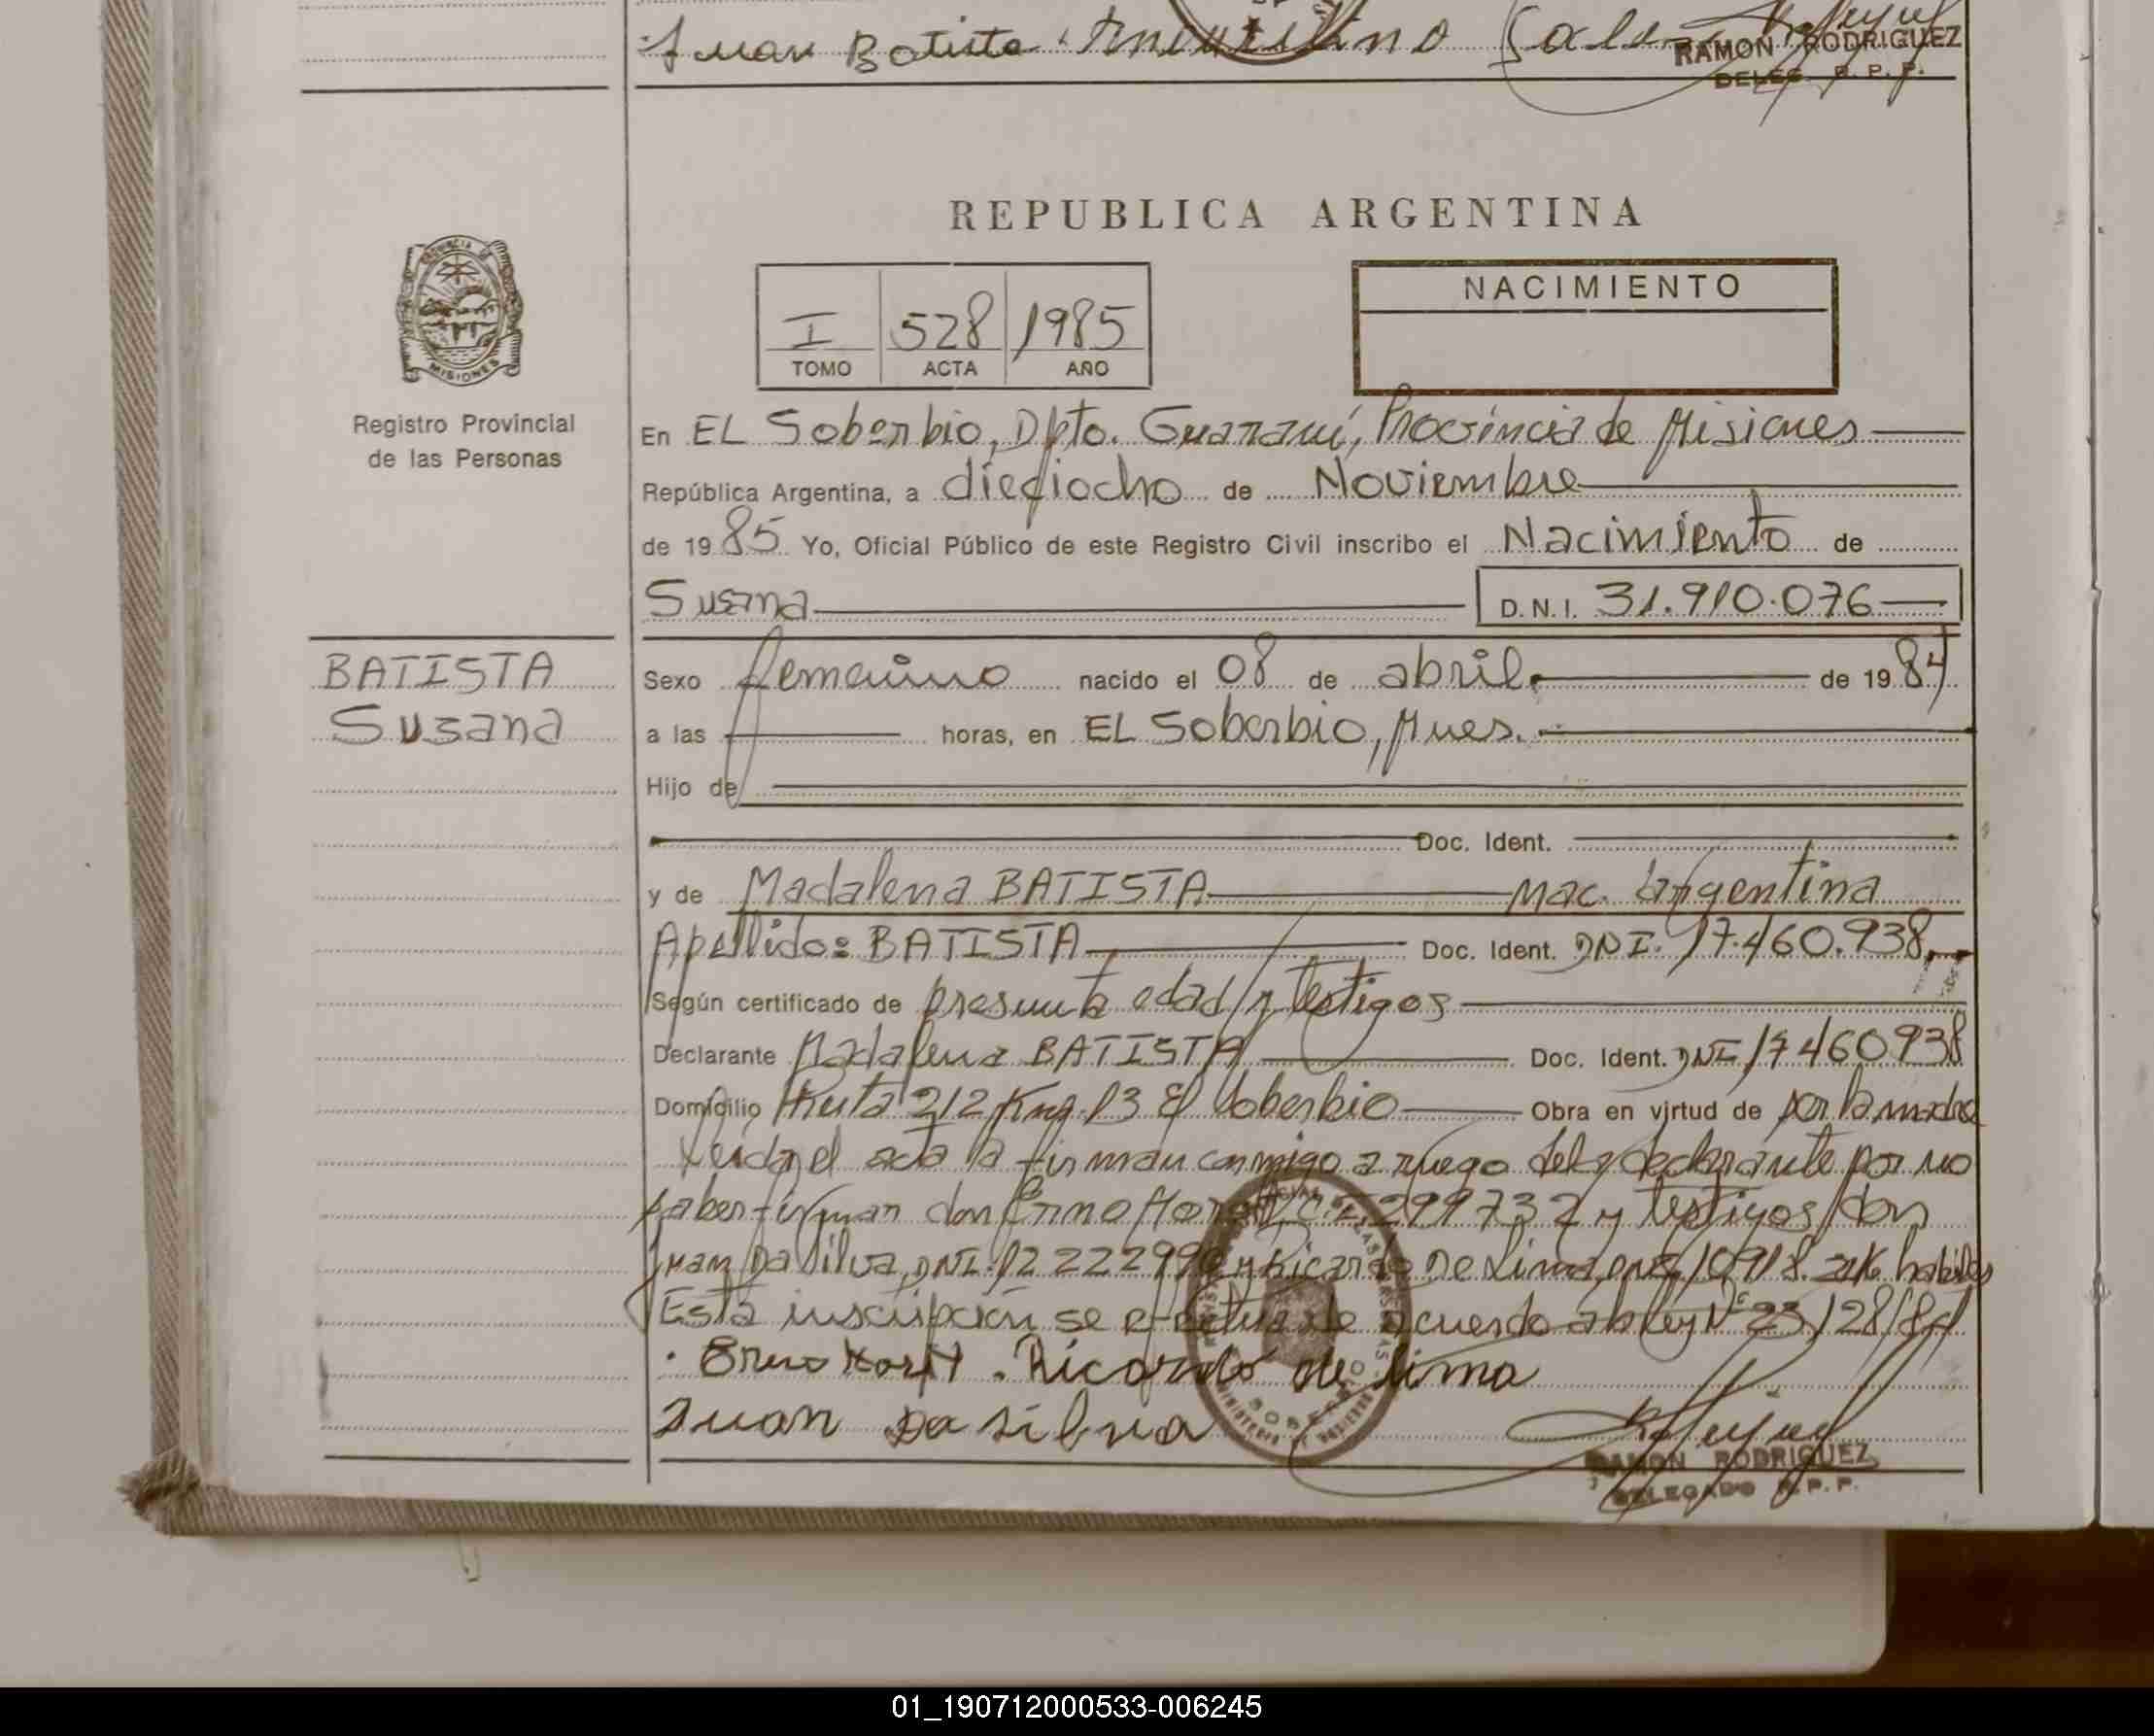 Juan Batista
RAMON RODRIGUEZ
DELEG. R. P. P.
REPUBLICA ARGENTINA
PROVINCIA DE MISIONES
Registro Provincial
de las Personas
I 528 1985
TOMO ACTA AÑO
NACIMIENTO
En EL Soberbio, Dpto. Guaraní, Provincia de Misiones
República Argentina, a dieciocho de Noviembre
de 1985 Yo, Oficial Público de este Registro Civil inscribo el Nacimiento de
Susana D.N.I. 31.910.076
BATISTA
Susana
Sexo femenino nacido el 08 de abril de 1984
a las horas, en EL Soberbio, Mnes.
Hijo de
Doc. Ident.
y de Madalena BATISTA Nac. argentina
Apellido: BATISTA Doc. Ident. DNI. 17.460.938
Según certificado de presunta edad y testigos
Declarante Madalena BATISTA Doc. Ident. DNI 17460938
Domicilio Ruta 212 Km. 13 El Soberbio Obra en virtud de por la madre
Leida el acta la firman conmigo a ruego de la declarante por no
saber firmar don Erno C.I. 299732 y testigos don
Juan Da Silva, DNI. 12 222 999 y Ricardo De Lima, DNI 10918. habiles
Esta inscripción se efectua de acuerdo a la ley N° 23128/84
Erno Ricardo de lima
Juan Da silva
RAMON RODRIGUEZ
DELEGADO R.P.P.
01_190712000533-006245